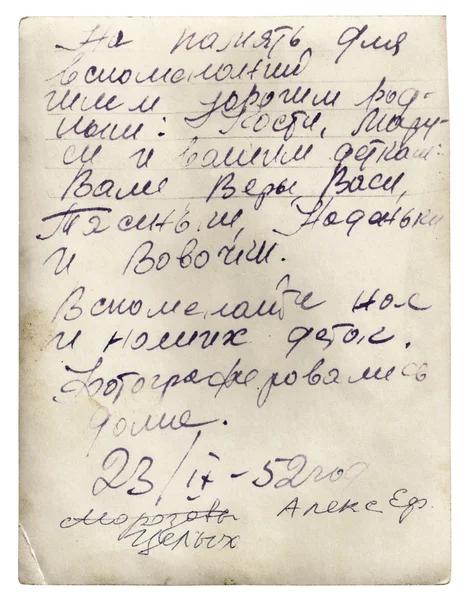 На память для
вспоменаний
шлем дорогим род-
ным: Кости, Мару-
си и вашим деткам:
Вале, Веры, Васи,
Тасиньки, Наданьки
и Вовочки.
Вспоменайте нас
и наших деток.
Фотографировались
дома.
23/IX-52 год
Морозовы Алекс Еф.
Целых